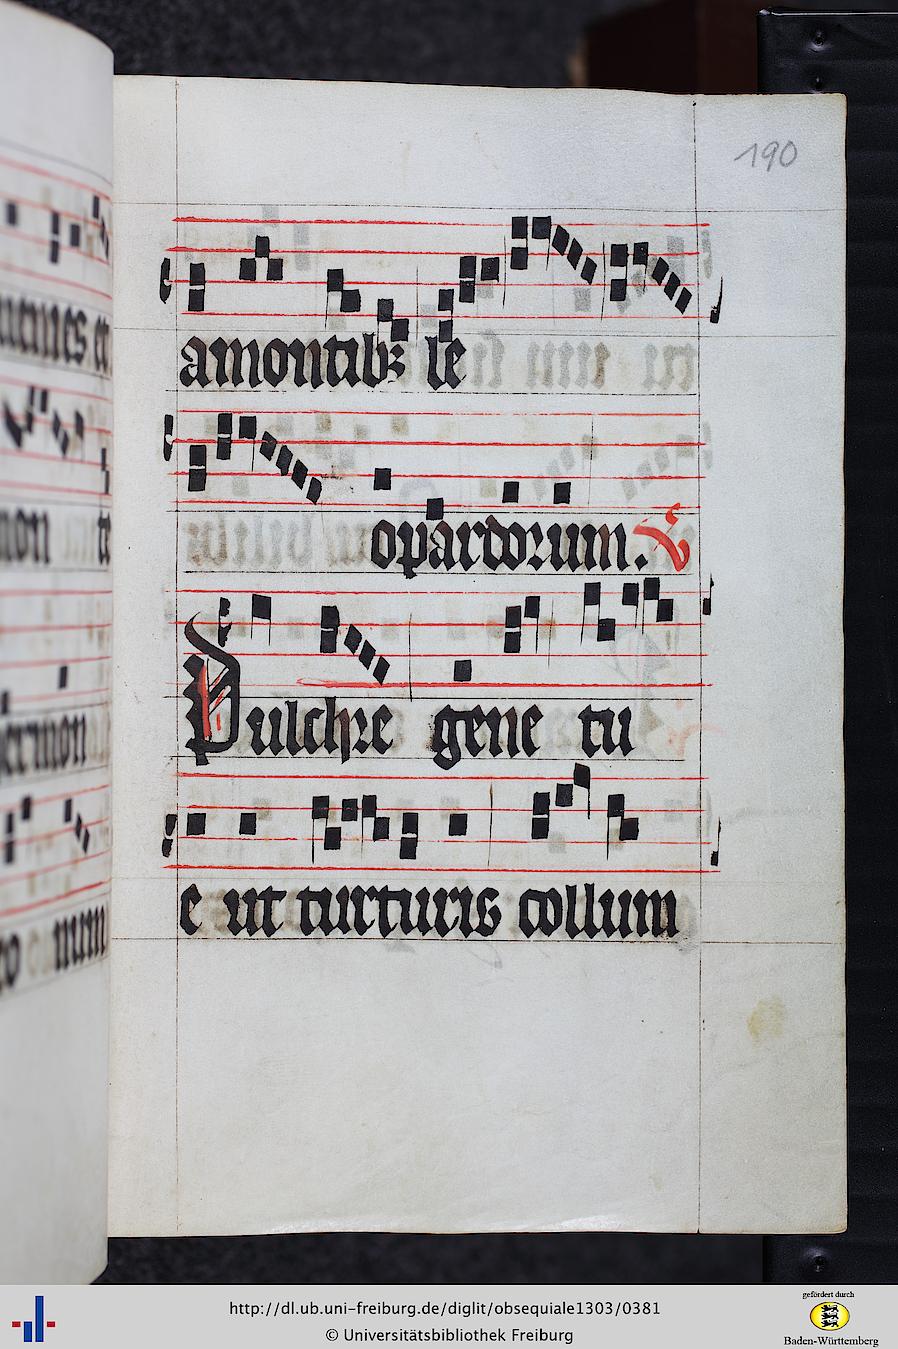 190
amontibꝫ le
opardorum. V
Pulchre gene tu
e ut turturis collum
http://dl.ub.uni-freiburg.de/diglit/obsequiale1303/0381
© Universitätsbibliothek Freiburg
gefördert durch
Baden-Württemberg